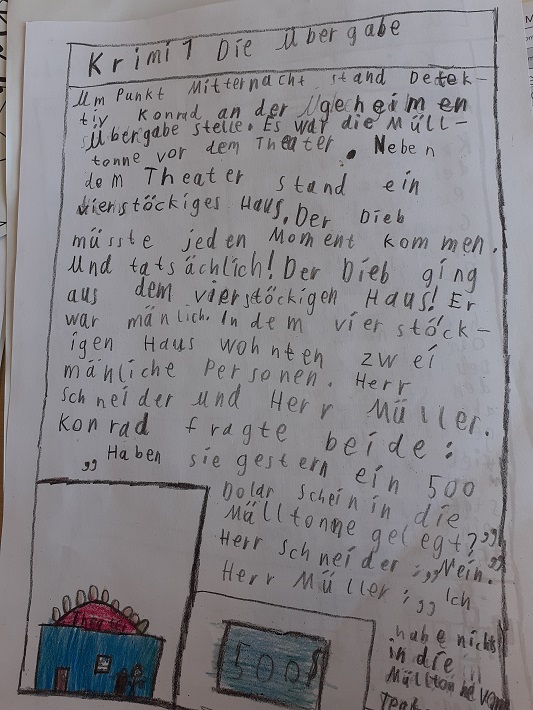 Krimi 1 Die Übergabe
Um Punkt Mitternacht stand Detek-
tiv Konrad an der geheimen
Übergabe stelle. Es war die Müll-
tonne vor dem Theater. Neben
dem Theater stand ein
vierstöckiges Haus. Der Dieb
müsste jeden Moment kommen.
Und tatsächlich! Der Dieb ging
aus dem vierstöckigen Haus! Er
war mänlich. In dem vierstöck-
igen Haus wohnten zwei
mänliche Personen. Herr
Schneider und Herr Müller.
Konrad fragte beide:
„Haben sie gestern ein 500
Dolar Schein in die
Mülltonne gelegt?"
Herr Schneider: „Nein."
Herr Müller: „Ich
habe nichts
in die
Mülltonne vom
500$